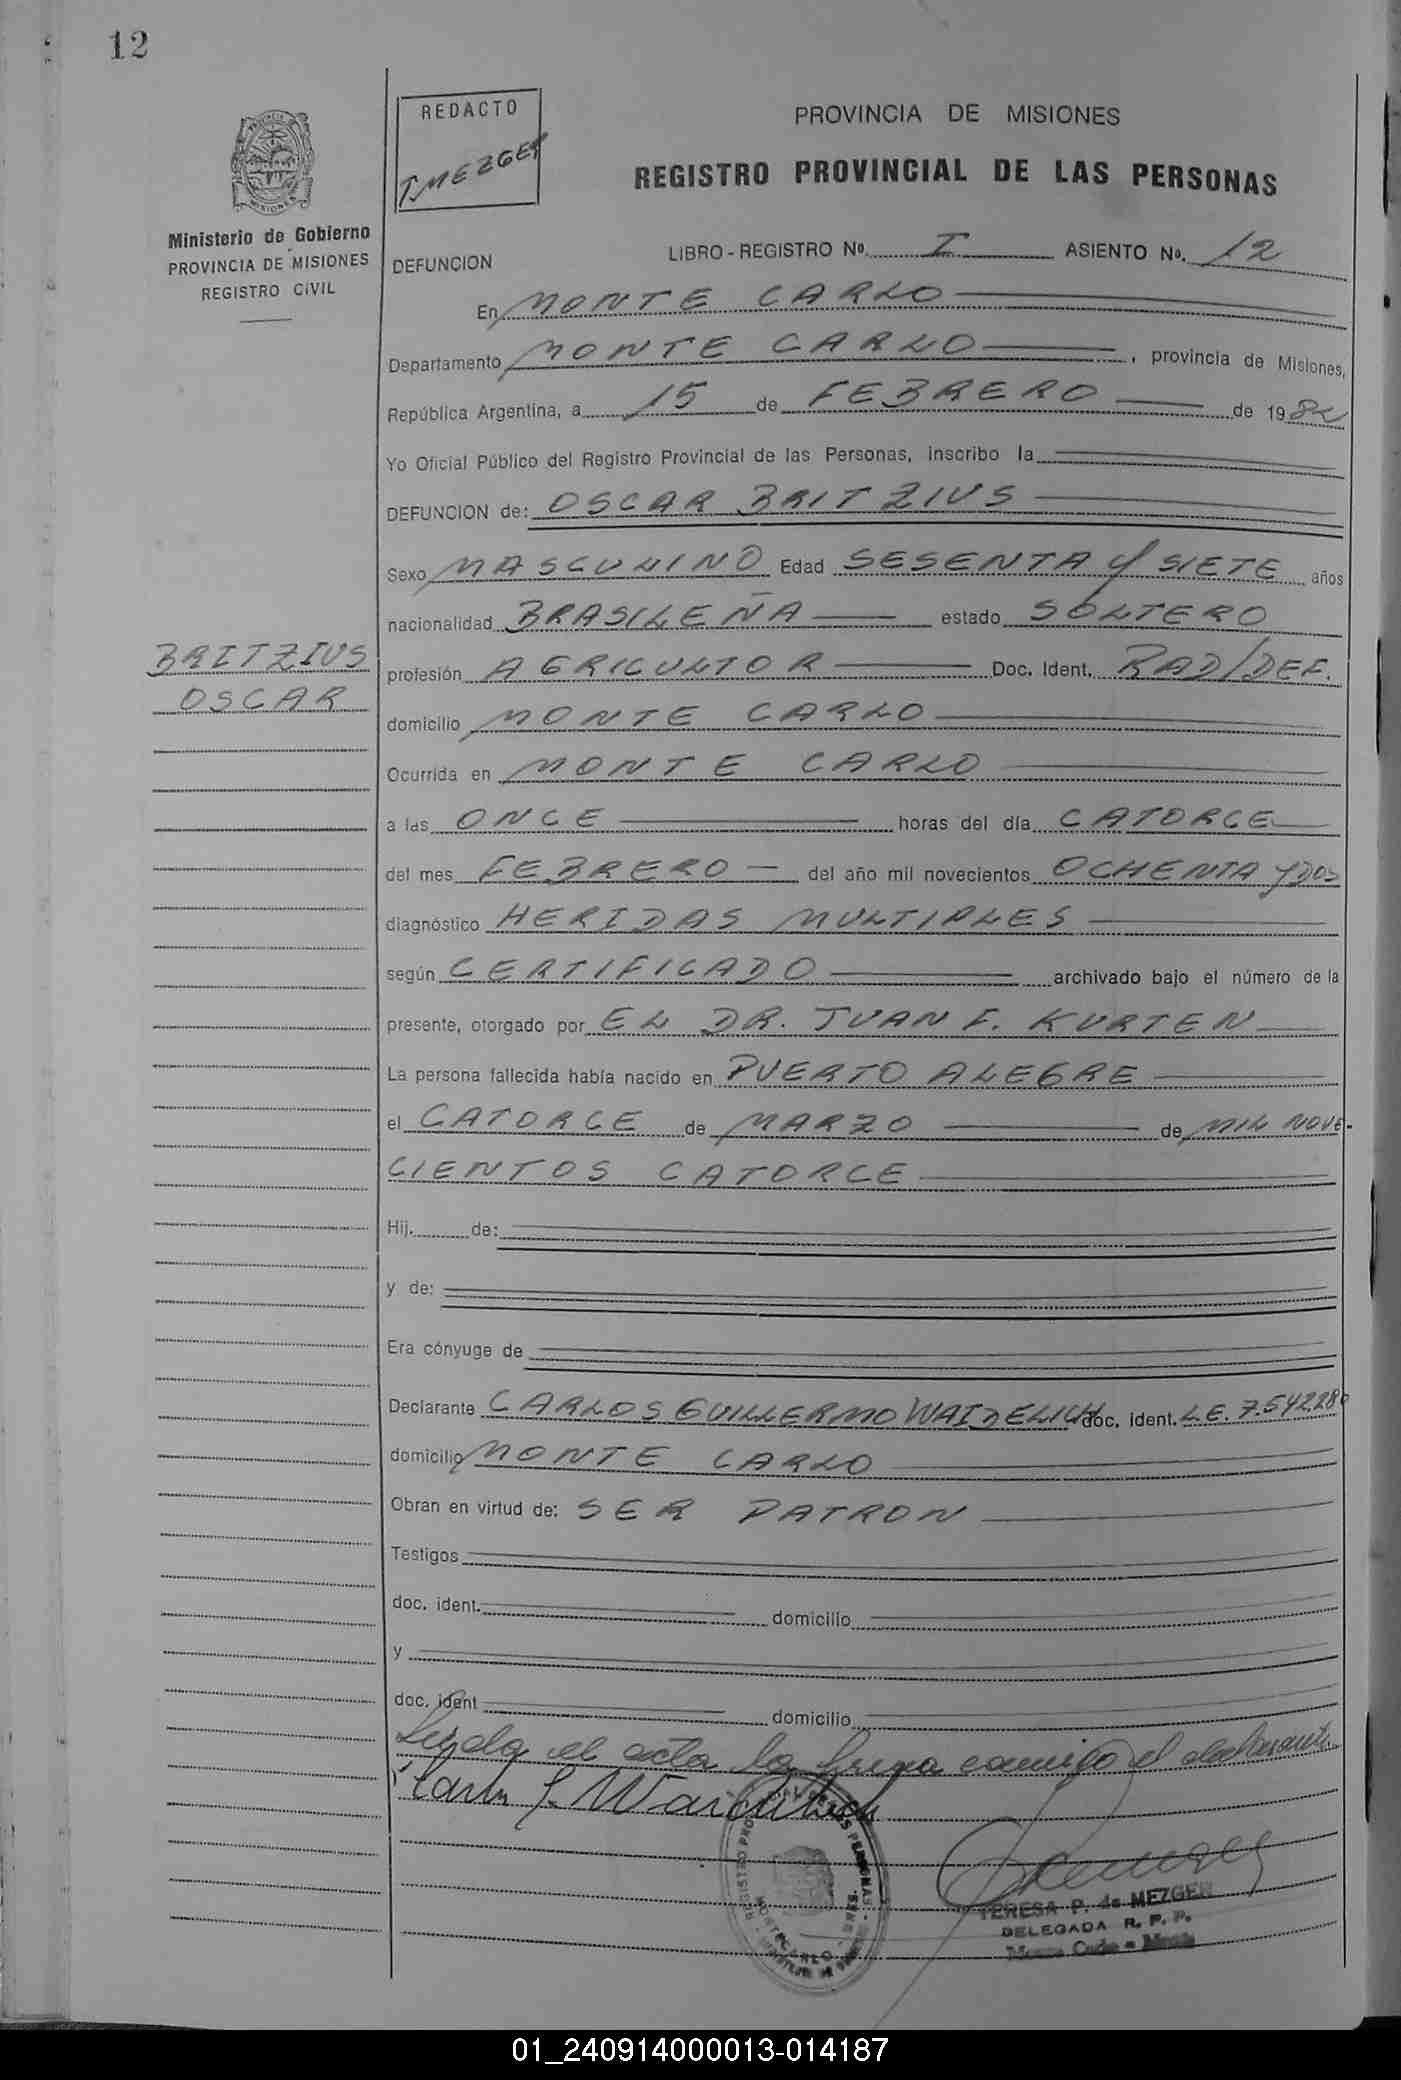 12
REDACTO
T. MEZGER
Ministerio de Gobierno
PROVINCIA DE MISIONES
REGISTRO CIVIL
PROVINCIA DE MISIONES
REGISTRO PROVINCIAL DE LAS PERSONAS
DEFUNCION LIBRO - REGISTRO Nº. I ASIENTO Nº. 12
En MONTE CARLO
Departamento MONTE CARLO, provincia de Misiones,
República Argentina, a 15 de FEBRERO de 1982
Yo Oficial Público del Registro Provincial de las Personas, inscribo la
DEFUNCION de: OSCAR BRITZIUS
Sexo MASCULINO Edad SESENTA Y SIETE años
nacionalidad BRASILEÑA estado SOLTERO
BRITZIUS
OSCAR
profesión AGRICULTOR Doc. Ident. RAD/DEF.
domicilio MONTE CARLO
Ocurrida en MONTE CARLO
a las ONCE horas del día CATORCE
del mes FEBRERO del año mil novecientos OCHENTA Y DOS
diagnóstico HERIDAS MULTIPLES
según CERTIFICADO archivado bajo el número de la
presente, otorgado por EL DR. JUAN F. KURTEN
La persona fallecida había nacido en PUERTO ALEGRE
el CATORCE de MARZO de MIL NOVE-
CIENTOS CATORCE
Hij. de:
y de:
Era cónyuge de
Declarante CARLOS GUILLERMO WAIDELICH doc. ident. L.E. 7.542.280
domicilio MONTE CARLO
Obran en virtud de: SER PATRON
Testigos
doc. ident. domicilio
y
doc. ident domicilio
Leída el acta la firma conmigo el declarante.
Carlos G. Waidelich
TERESA P. de MEZGER
DELEGADA R. P. P.
Monte Carlo - Mnes
01_240914000013-014187